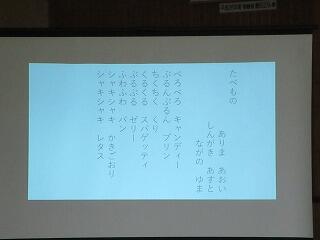 たべもの
ありま あおい
しんがき あすと
ながの ゆま
ぺろぺろ キャンディー
ぷるんぷるん プリン
ちくちく くり
くるくる スパゲッティ
ぷるぷる ゼリー
ふわふわ パン
シャキシャキ かきごおり
シャキシャキ レタス